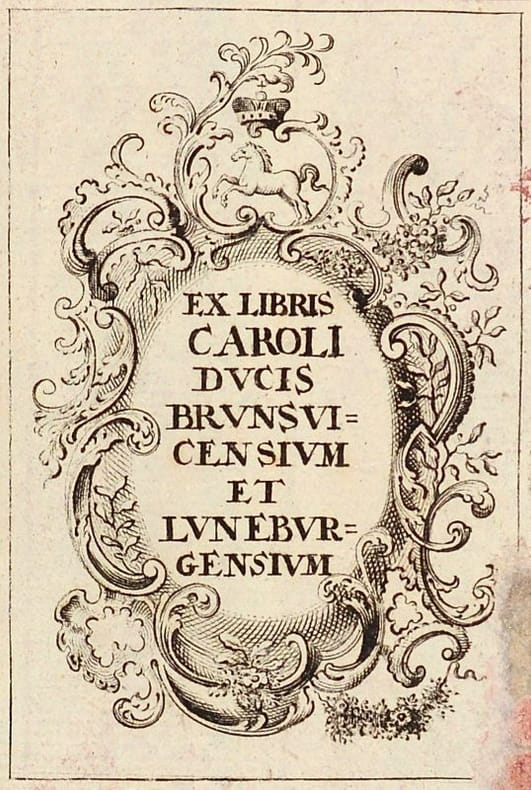 EX LIBRIS
CAROLI
DVCIS
BRVNSVI=
CENSIVM
ET
LVNEBVR=
GENSIVM